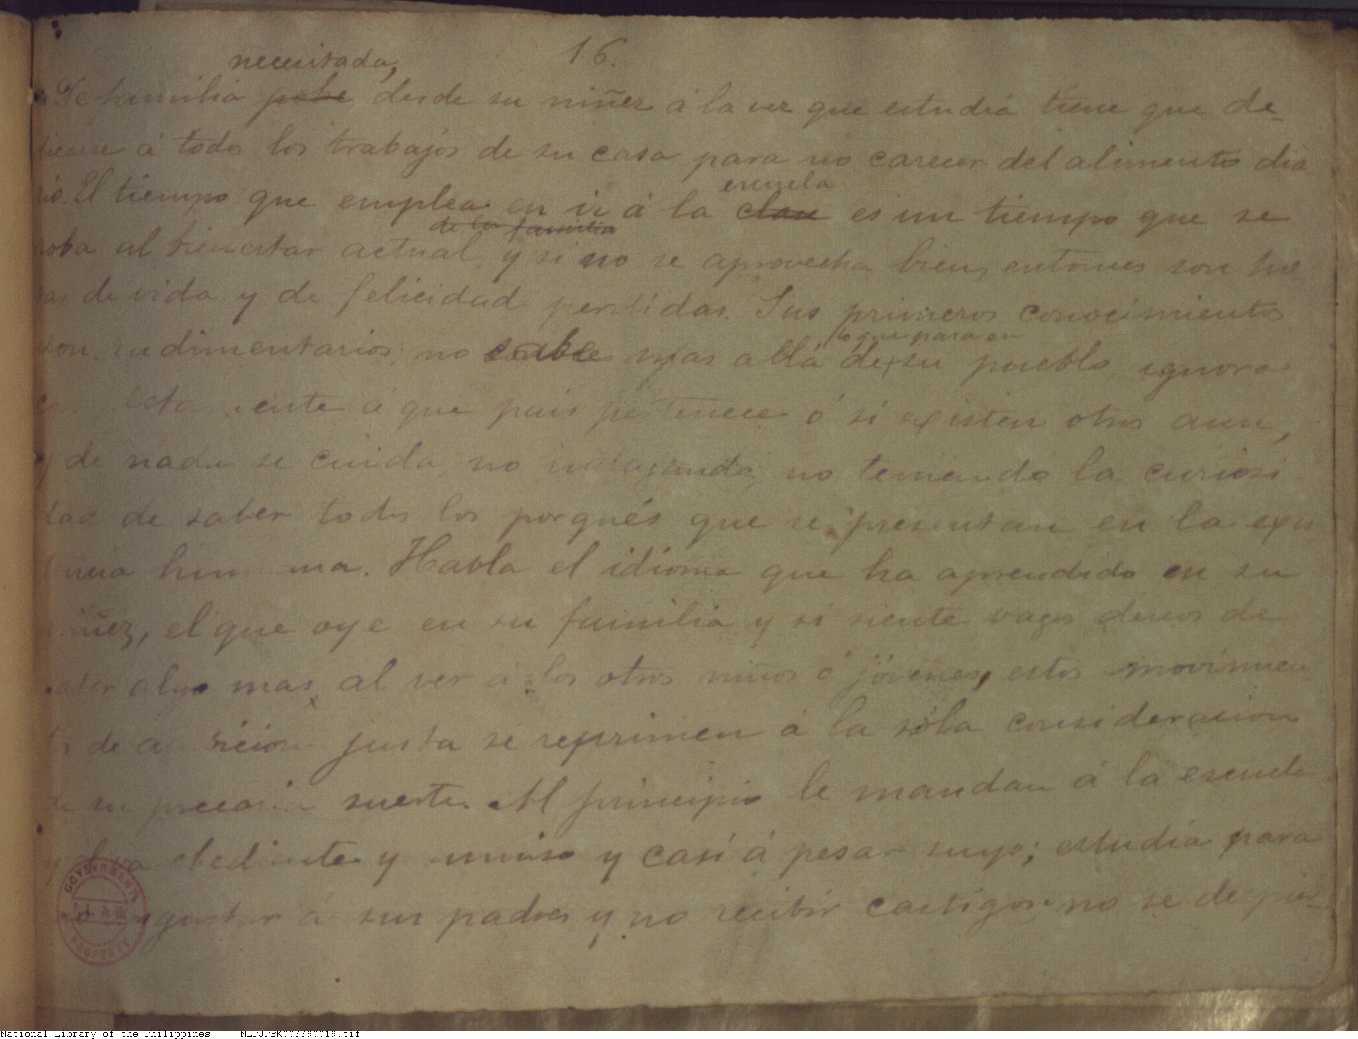 16.
necesitada,
De familia pobre desde su niñez á la vez que estudia tiene que de-
á todos los trabajos de su casa para no carecer del alimento dia
rio. El tiempo que emplea en ir á la clase es un tiempo que se
escuela
roba al bienestar actual y si no se aprovecha bien, entonces son ho
de la familia
ras de vida y de felicidad perdidas. Sus primeros conocimientos
son rudimentarios; no sabe mas allá de su pueblo ignora
lo que pasa en
á que pais pertenece ó si existen otros aun,
y de nada se cuida no indagando, no teniendo la curiosi
dad de saber todos los porqués que se presentan en la exis
tencia humana. Habla el idioma que ha aprendido en su
niñez, el que oye en su familia y si siente vagos deseos de
saber algo mas al ver á los otros niños ó jóvenes, estos movimien
tos de ambicion justa se reprimen á la sola consideracion
de su precaria suerte. Al principio le mandan á la escuela
y obediente y sumiso y casi á pesar suyo; estudia para
no disgustar á sus padres y no recibir castigos no se
GOVERNMENT
PROPERTY
National Library of the Philippines